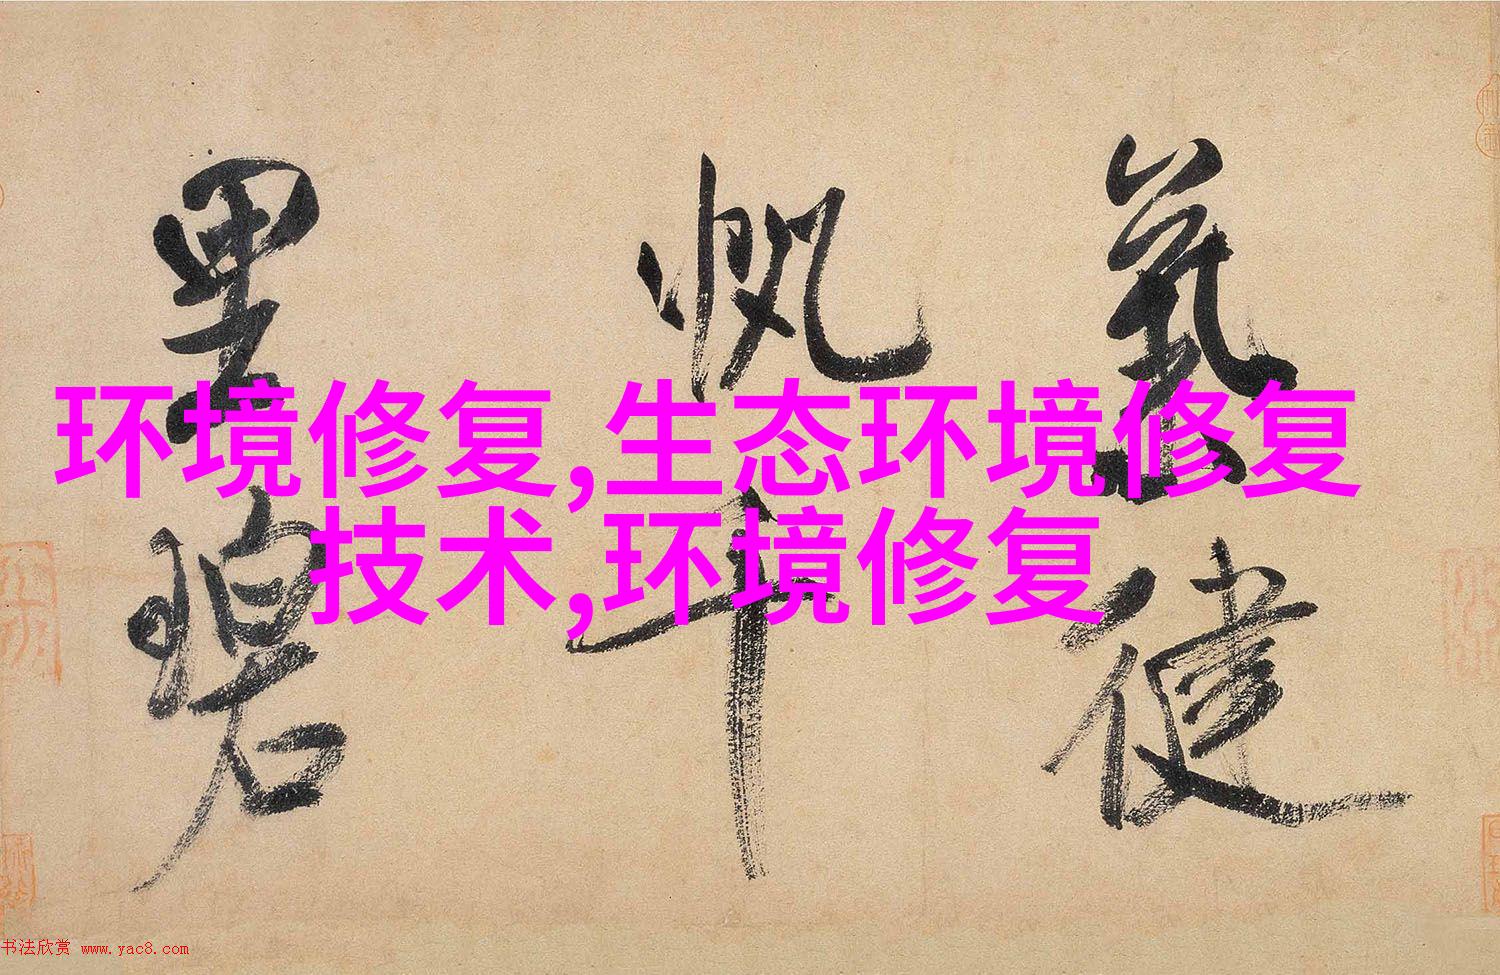 氣健
帆千
里碧
环境修复,生态环境修复
技术,环境修复
书法欣赏 www.yac8.com